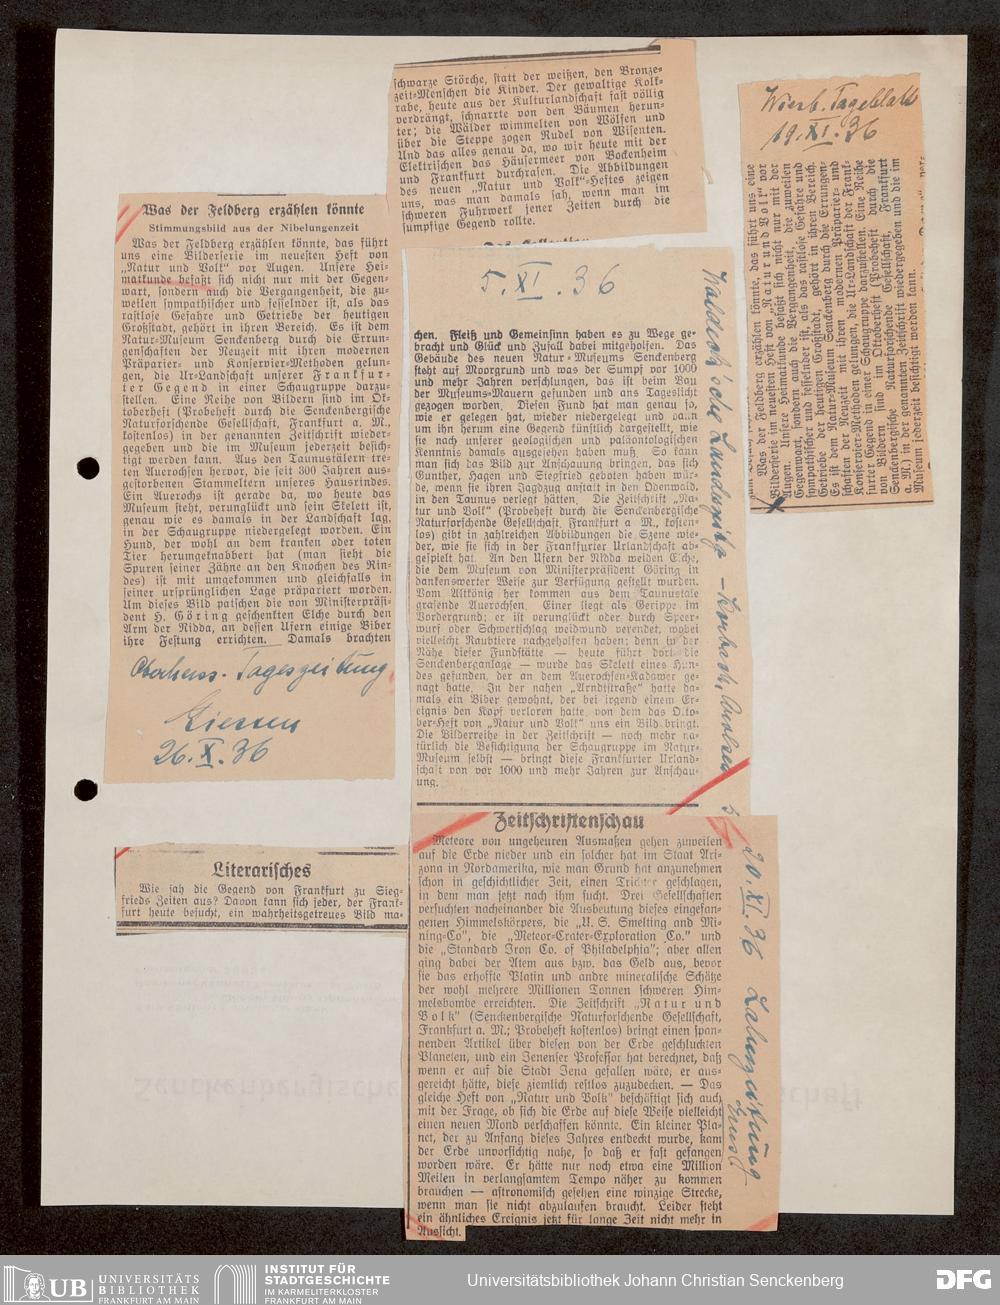 Was der Feldberg erzählen könnte
Stimmungsbild aus der Nibelungenzeit
Was der Feldberg erzählen könnte, das führt
uns eine Bilderserie im neuesten Heft von
„Natur und Volk“ vor Augen. Unsere Hei-
matkunde befaßt sich nicht nur mit der Gegen-
wart, sondern auch die Vergangenheit, die zu-
weilen sympathischer und fesselnder ist, als das
rastlose Gefahre und Getriebe der heutigen
Großstadt, gehört in ihren Bereich. Es ist dem
Natur-Museum Senckenberg durch die Errun-
genschaften der Neuzeit mit ihren modernen
Präparier- und Konservier-Methoden gelun-
gen, die Ur-Landschaft unserer Frankfur-
ter Gegend in einer Schaugruppe darzu-
stellen. Eine Reihe von Bildern sind im Ok-
toberheft (Probeheft durch die Senckenbergische
Naturforschende Gesellschaft, Frankfurt a. M.,
kostenlos) in der genannten Zeitschrift wieder-
gegeben und die im Museum jederzeit besich-
tigt werden kann. Aus den Taunustälern tre-
ten Auerochsen hervor, die seit 300 Jahren aus-
gestorbenen Stammeltern unseres Hausrindes.
Ein Auerochs ist gerade da, wo heute das
Museum steht, verunglückt und sein Skelett ist,
genau wie es damals in der Landschaft lag,
in der Schaugruppe niedergelegt worden. Ein
Hund, der wohl an dem kranken oder toten
Tier herumgeknabbert hat (man sieht die
Spuren seiner Zähne an den Knochen des Rin-
des) ist mit umgekommen und gleichfalls in
seiner ursprünglichen Lage präpariert worden.
Um dieses Bild patschen die von Ministerpräsi-
dent H. Göring geschenkten Elche durch den
Arm der Nidda, an dessen Ufern einige Biber
ihre Festung errichten. Damals brachten
Oberhess. Tageszeitung
Giessen
26.X.36
schwarze Störche, statt der weißen, den Bronze-
zeit-Menschen die Kinder. Der gewaltige Kolk-
rabe, heute aus der Kulturlandschaft fast völlig
verdrängt, schnarrte von den Bäumen herun-
ter; die Wälder wimmelten von Wölfen und
über die Steppe zogen Rudel von Wisenten.
Und das alles genau da, wo wir heute mit der
Elektrischen das Häusermeer von Bockenheim
und Frankfurt durchrasen. Die Abbildungen
des neuen „Natur und Volk“-Heftes zeigen
uns, was man damals sah, wenn man im
schweren Fuhrwerk jener Zeiten durch die
sumpfige Gegend rollte.
Literarisches
Wie sah die Gegend von Frankfurt zu Sieg-
frieds Zeiten aus? Davon kann sich jeder, der Frank-
furt heute besucht, ein wahrheitsgetreues Bild ma-
5.XI.36
chen. Fleiß und Gemeinsinn haben es zu Wege ge-
bracht und Glück und Zufall dabei mitgeholfen. Das
Gebäude des neuen Natur-Museums Senckenberg
steht auf Moorgrund und was der Sumpf vor 1000
und mehr Jahren verschlungen, das ist beim Bau
der Museums-Mauern gefunden und ans Tageslicht
gezogen worden. Diesen Fund hat man genau so,
wie er gelegen hat, wieder niedergelegt und dann
um ihn herum eine Gegend künstlich dargestellt, wie
sie nach unserer geologischen und paläontologischen
Kenntnis damals ausgesehen haben muß. So kann
man sich das Bild zur Anschauung bringen, das sich
Gunther, Hagen und Siegfried geboten haben wür-
de, wenn sie ihren Jagdzug anstatt in den Odenwald,
in den Taunus verlegt hätten. Die Zeitschrift „Na-
tur und Volk“ (Probeheft durch die Senckenbergische
Naturforschende Gesellschaft, Frankfurt a M., kosten-
los) gibt in zahlreichen Abbildungen die Szene wie-
der, wie sie sich in der Frankfurter Urlandschaft ab-
gespielt hat. An den Ufern der Nidda weiden Elche,
die dem Museum von Ministerpräsident Göring in
dankenswerter Weise zur Verfügung gestellt wurden.
Vom Altkönig her kommen aus dem Taunustale
grasende Auerochsen. Einer liegt als Gerippe im
Vordergrund; er ist verunglückt oder durch Speer-
wurf oder Schwertschlag weidwund verendet, wobei
vielleicht Raubtiere nachgeholfen haben; denn in der
Nähe dieser Fundstätte — heute führt dort die
Senckenberganlage — wurde das Skelett eines Hun-
des gefunden, der an dem Auerochsen-Kadaver ge-
nagt hatte. In der nahen „Arndtstraße“ hatte da-
mals ein Biber gewohnt, der bei irgend einem Er-
eignis den Kopf verloren hatte, von dem das Okto-
ber-Heft von „Natur und Volk“ uns ein Bild bringt.
Die Bilderreihe in der Zeitschrift — noch mehr na-
türlich die Besichtigung der Schaugruppe im Natur-
Museum selbst — bringt diese Frankfurter Urland-
schaft von vor 1000 und mehr Jahren zur Anschau-
ung.
Waldeck'sche Landeszeitg – Korbach, Arolsen
Zeitschriftenschau
Meteore von ungeheuren Ausmaßen gehen zuweilen
auf die Erde nieder und ein solcher hat im Staat Ari-
zona in Nordamerika, wie man Grund hat anzunehmen
schon in geschichtlicher Zeit, einen Trichter geschlagen,
in dem man jetzt nach ihm sucht. Drei Gesellschaften
versuchten nacheinander die Ausbeutung dieses eingefan-
genen Himmelskörpers, die „U. S. Smelting and Mi-
ning-Co“, die „Meteor-Crater-Exploration Co.“ und
die „Standard Iron Co. of Philadelphia“; aber allen
ging dabei der Atem aus bzw. das Geld aus, bevor
sie das erhoffte Platin und andre mineralische Schätze
der wohl mehrere Millionen Tonnen schweren Him-
melsbombe erreichten. Die Zeitschrift „Natur und
Volk“ (Senckenbergische Naturforschende Gesellschaft,
Frankfurt a. M.; Probeheft kostenlos) bringt einen span-
nenden Artikel über diesen von der Erde geschluckten
Planeten, und ein Jenenser Professor hat berechnet, daß
wenn er auf die Stadt Jena gefallen wäre, er aus-
gereicht hätte, diese ziemlich restlos zuzudecken. — Das
gleiche Heft von „Natur und Volk“ beschäftigt sich auch
mit der Frage, ob sich die Erde auf diese Weise vielleicht
einen neuen Mond verschaffen könnte. Ein kleiner Pla-
net, der zu Anfang dieses Jahres entdeckt wurde, kam
der Erde unvorsichtig nahe, so daß er fast gefangen
worden wäre. Er hätte nur noch etwa eine Million
Meilen in verlangsamtem Tempo näher zu kommen
brauchen — astronomisch gesehen eine winzige Strecke,
wenn man sie nicht abzulaufen braucht. Leider steht
ein ähnliches Ereignis jetzt für lange Zeit nicht mehr in
Aussicht.
20.XI.36
Wiesb. Tageblatt
19.XI.36
Was der Feldberg erzählen könnte, das führt uns eine
Bilderserie im neuesten Heft von „Natur und Volk“ vor
Augen. Unsere Heimatkunde befaßt sich nicht nur mit der
Gegenwart, sondern auch die Vergangenheit, die zuweilen
sympathischer und fesselnder ist, als das rastlose Gefahre und
Getriebe der heutigen Großstadt, gehört in ihren Bereich.
Es ist dem Natur-Museum Senckenberg durch die Errungen-
schaften der Neuzeit mit ihren modernen Präparier- und
Konservier-Methoden gelungen, die Ur-Landschaft der Frank-
furter Gegend in einer Schaugruppe darzustellen. Eine Reihe
von Bildern sind im Oktoberheft (Probeheft durch die
Senckenbergische Naturforschende Gesellschaft, Frankfurt
a. M.) in der genannten Zeitschrift wiedergegeben und die im
Museum jederzeit besichtigt werden kann.
UB UNIVERSITÄTS
BIBLIOTHEK
FRANKFURT AM MAIN
INSTITUT FÜR
STADTGESCHICHTE
IM KARMELITERKLOSTER
FRANKFURT AM MAIN
Universitätsbibliothek Johann Christian Senckenberg
DFG